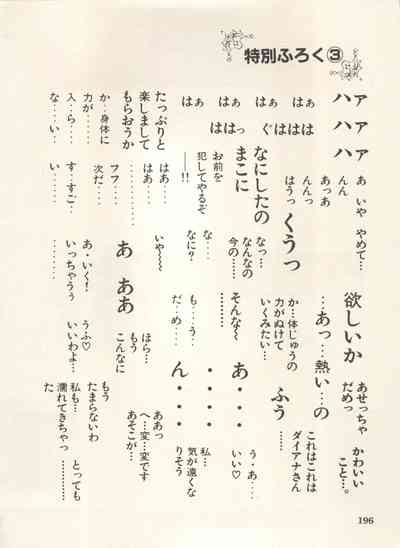 特別ふろく③
ァ ァ ァ
ハ ハ ハ
はぁ はぁ はぁ はぁ
ぐははは
ははっ
あ いや やめて…
んん
あっあ
んんっ
はうっ
くうっ
なにしたの
まこに
お前を
犯してやるぞ
──!!
はあ…
はあ…
フフ……
次だ…
たっぷりと
楽しまして
もらおうか
か…身体に
力が……
入…ら……
な……い…
す…すご…
い……
欲しいか
…あっ…熱い…の
か…体じゅうの
力がぬけて
いくみたい…
なっ…
なんなの
今の……
そんな〜
な……
なに?
いや〜〜
も…う…
だ…め…
あ ああ
あ・いく!
いっちゃうぅ
うふ♡
いいわよ…
ほら…
もう
こんなに
あせっちゃ
だめっ
かわいい
こと…。
これはこれは
ダイアナさん
ふう
……
う・あ…
いい♡
あ・・・・
ん・・・・
私…
気が遠くな
りそう
ああっ
へ…変…変です
あそこが…
もう
たまらないわ
私も…
濡れてきちゃっ
た
とっても
………
196